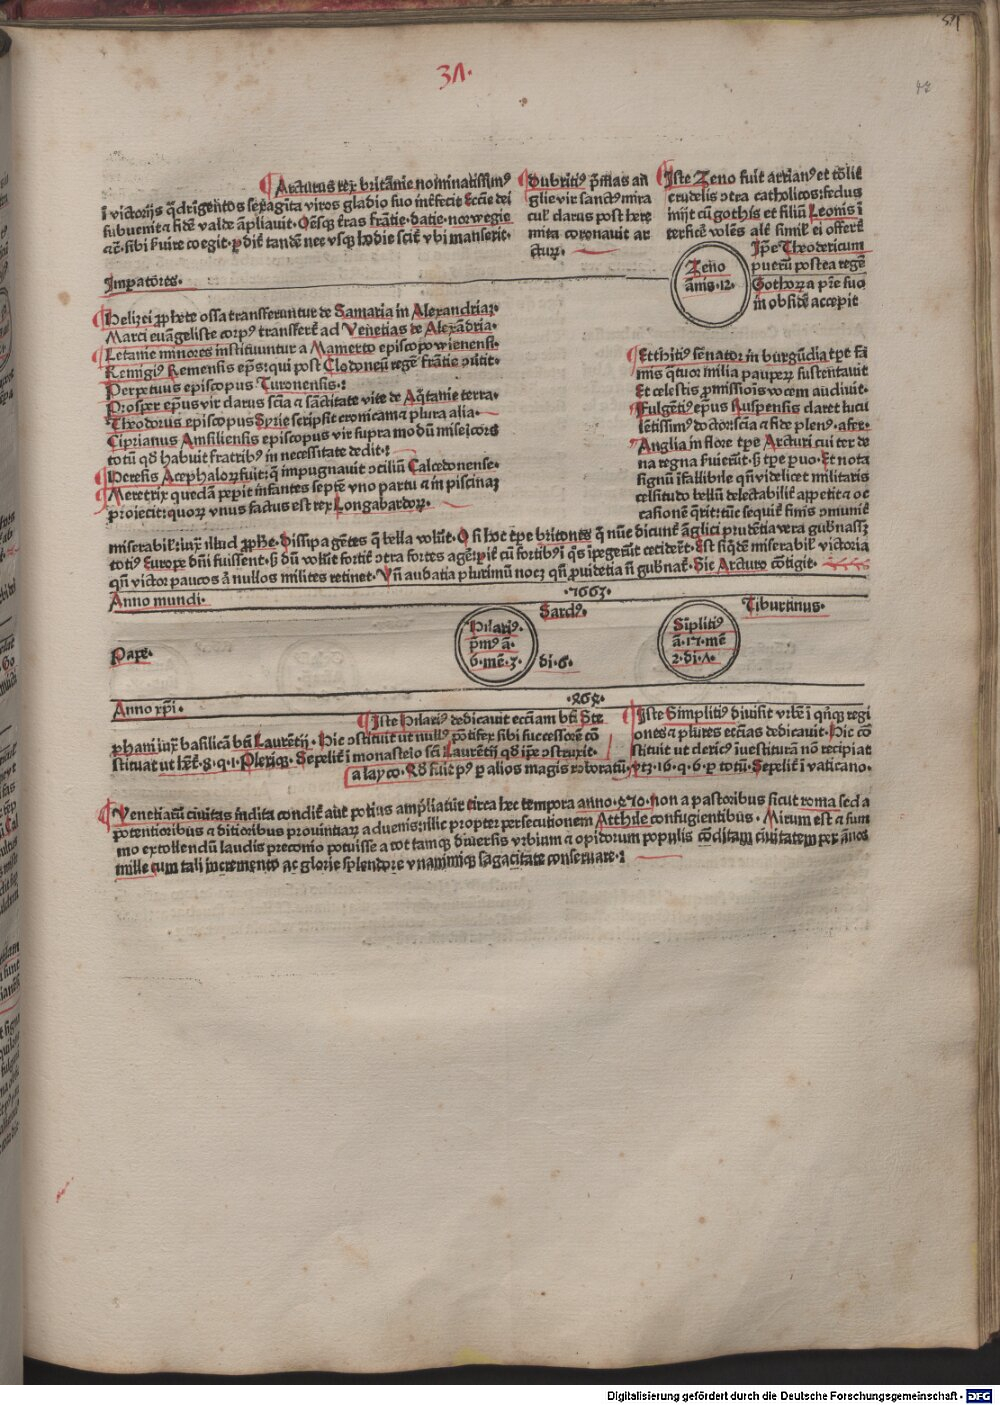 31.
Arcturus rex britãnie nominatissimꝰ
ĩ victorijs q̃drigentos sexagĩta viros gladio suo interfecit Eccĩe dei
subuenit ⁊ fidē valde ãpliauit. Oẽsq terras frãtie. datie. norwegie
⁊cẽ. sibi ſuire coegit. ꝑ diẽ tandē nec vsq hodie scit̃ vbi manserit.
dubritiꝰ
glie vir sanctꝰ mira
culꝰ darus post here
mita coronauit ar
cturꝫ.
Iste Zeno fuit arrianꝰ et
crudelis ↄtra catholicos: fedus
inijt cũ gothis et filiũ Leonis ĩ
terficẽ volẽs aliẽ simileẽ ei offerẽ
Ipẽ Theodericum
puerũ postea regẽ
Gothoꝝ a pr̃e suo
in obsidẽ accepit
Imp̃atores.
Zeno
ãnis .12.
Helizei ꝓphete ossa transferuntur de Samaria in Alexandriaꝫ.
Marci euãgeliste corpꝰ transfertẽ ad Venetias de Alexãdria.
Letanie minores instituuntur a Mamerto episcopo wienensi.
Remigiꝰ Remensis ep̃s: qui post Clodoneũ regẽ frãtie ↄũtit.
Perpetuus episcopus Turonensis.:
Prosper ep̃us vir darus scĩa ⁊ sãctitate vite de Aq̃tanie terra.
Theodorus episcopus Syrie scripsit cronicam ⁊ plura alia.
Ciprianus Amsiliensis episcopus vir supra modũ misẽicors
totũ qd̃ habuit fratribꝰ in necessitate dedit.:
Heresis Acephaloꝝ fuit: q̃ impugnauit ↄciliũ Calcedonense.
Meretrix quedã peperit infantes septẽ vno partu ⁊ in piscinaꝫ
proiecit: quoꝝ vnus factus est rex Longabardoꝝ.
Etthitiꝰ sẽnator in burgũdia tp̃e fa
mis q̃tuor milia pauperꝝ sustentauit
Et celestis ꝓmissiõis vocem audiuit.
Fulgẽtiꝰ ep̃us Ruspensis claret lucu
lẽtissimꝰ doctor scĩa ⁊ fide plenꝰ. afer.
Anglia in flore tp̃e Arcturi cui ter de
na regna fuierũt. ß tp̃e ꝑuo. Et nota
signũ ĩfallibile qñ videlicet militaris
celsitudo bellũ delectabiliẽ appetit ⁊ oc
casionẽ q̃rit: tũc sequiẽ finis ↄmuniẽ
miserabil: iuxͭ illud ꝓphẽ. Dissipa gẽtes q̃ bella volũt. O si hoc tp̃e britones q̃ nũc dicunẽ ãglici prudẽtia vera gubñassꝫ
totiꝰ Europe dñi fuissent. ß dũ volũt fortiẽ ↄtra fortes agẽ: ꝑiẽ cũ fortibꝰ ĩ q̃s ĩpegerũt ceciderẽt. Est siq̃dẽ miserabilꝰ victoria
qñ victor paucos ã nullos milites retinet. Vñ audatia plurimũ nocꝫ qñ ꝓuidetia ñ gubñat̃. Sic Arcturo cõtigit.
Anno mundi.
.5663.
Pape.
Sardꝰ.
Hilariꝰ.
p̃mꝰ ã.
6. mẽ. 3.
di. 6.
Tiburtinus.
Sĩplitiꝰ
ã. 15. mẽ
2. di. 7.
Anno xp̃i.
.464.
Iste Hilariꝰ dedicauit eccĩam bt̃i Ste
phani iuxͭ basilicã bt̃i Laurẽtij. Hic ↄstituit ut nullꝰ põtifex sibi successorẽ cõ
stituat ut hẽt̃. 8. q. 1. Pleriq. Sepelit̃ ĩ monasteio scĩ Laurẽtij qd̃ ip̃e ↄstruxit.
Iste Simplitiꝰ diuisit vrbẽ ĩ qnq regi
ones ⁊ plures eccĩas dedicauit. Hic cõ
stituit ut clericꝰ ĩuestiturã nõ recipiat
a layco. Qd̃ fuit pꝰ ꝑ alios magis roboratũ. vtꝫ. 16. q. 6. ꝑ totũ. Sepelit̃ ĩ vaticano.
Venetiarũ ciuitas ĩndita condit̃ aut̃ potius ampliatur circa hec tempora anno. 470. non a pastoribus sicut roma sed a
potentioribus ⁊ ditioribus prouintiaꝝ aduenis: illic propter persecutionem Atthile confugientibus. Mirum est ⁊ sum
mo extollendũ laudis preconio potuisse a tot tamq diuersis vrbium ⁊ opidorum populis cõditam ciuitatem per ãnos
mille cum tali incremento ac glorie splendore vnanimiq sagacitate conseruare.:
Digitalisierung gefördert durch die Deutsche Forschungsgemeinschaft - DFG